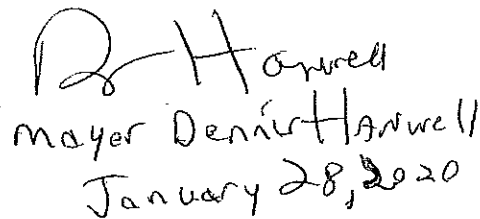 D Hanwell
Mayer Dennis Hanwell
January 28, 2020